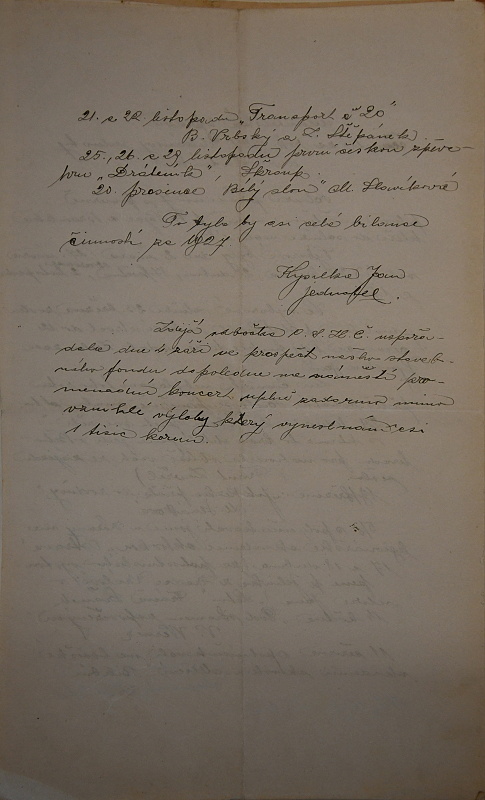 21. a 22. listopadu „Transport č 20"
B. Vrbský a Z. Štěpánek.
25., 26. a 29 listopadu první českou zpěvo-
hru „Dráteník" Škroup.
20. prosince „Bílý slon" M. Slavíkové
To bylo by asi celé bilance
činnosti za 1927
Jan
jednatel.
odbočka
dala dne 4 září ve prospěch našeho staveb-
ního fondu dopoledne na náměstí pro-
menádní koncert úplně zadarmo mimo
vzniklé výlohy který vynesl nám asi
1 tisíc korun.